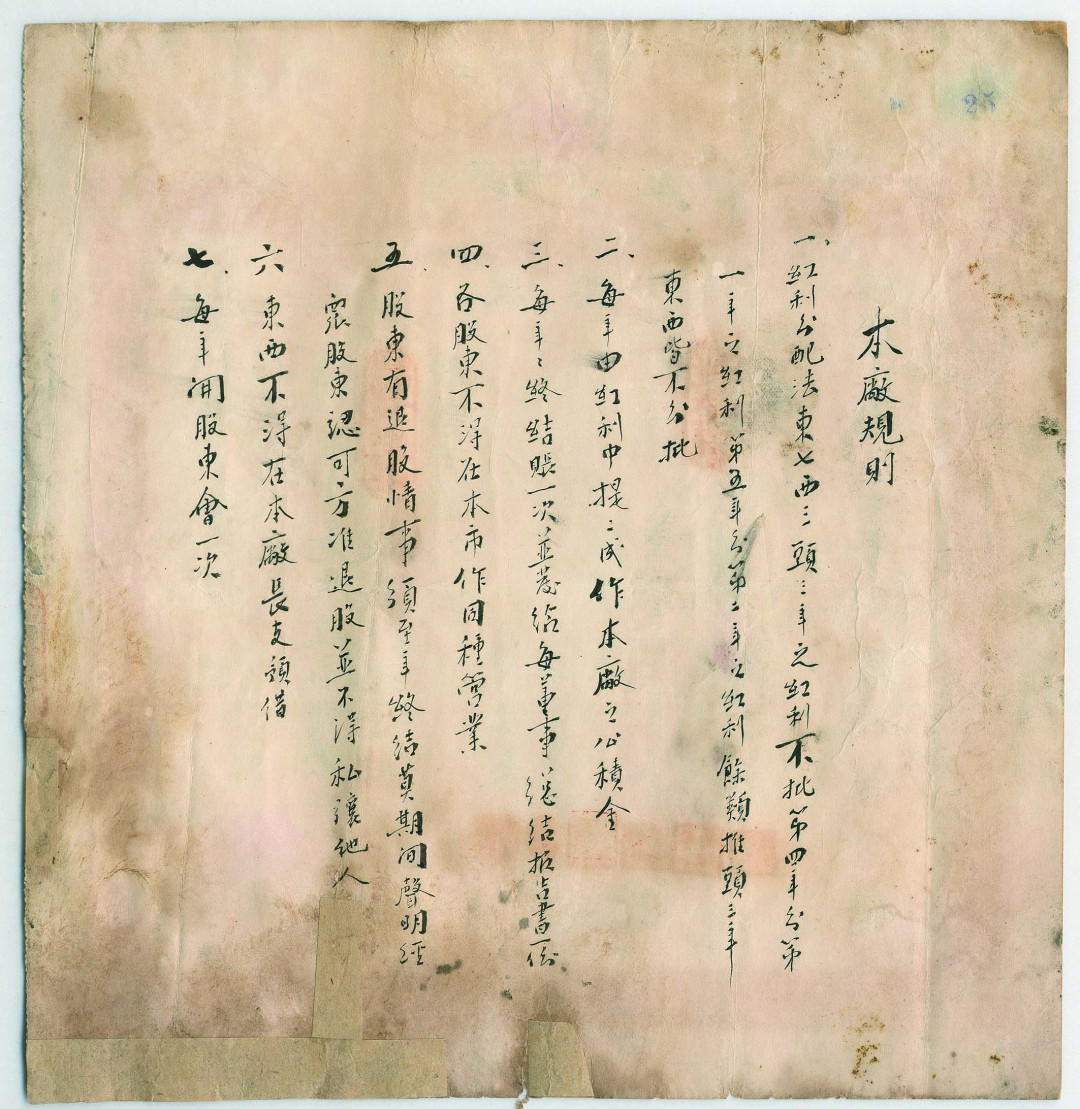 25
本廠規則
一、紅利分配法東七西三頭三年之紅利不批第四年分第
一年之紅利第五年分第二年之紅利餘類推頭三年
東西皆不分批
二、每年由紅利中提二成作本廠之公積金
三、每年年終結賬一次並發給每董事總結報告書一份
四、各股東不得在本市作同種營業
五、股東有退股情事須至年終結算期間聲明經
眾股東認可方准退股並不得私讓他人
六 東西不得在本廠長支預借
七、每年開股東會一次